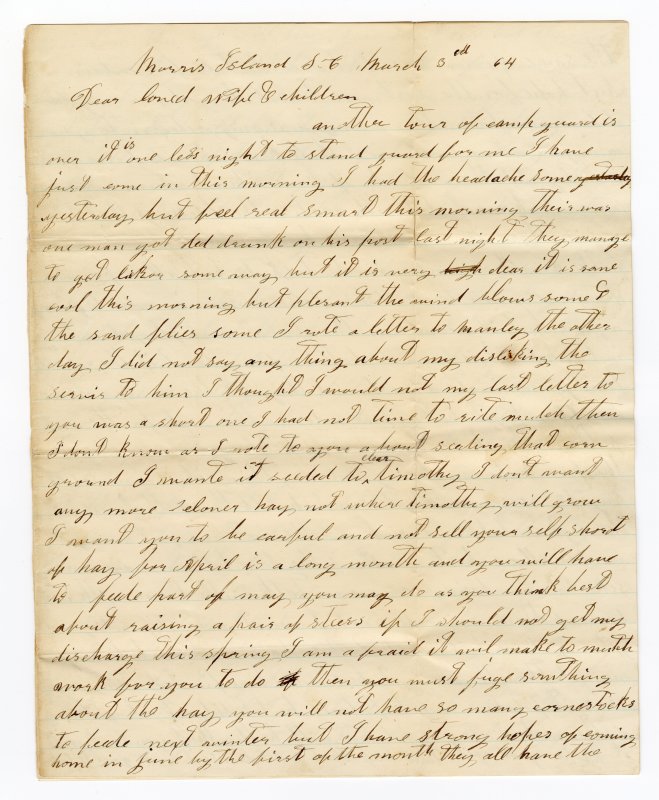 Morris Island S-C March 3th 64
Dear loved Wife & children
another tour of camp guard is
over it is one less night to stand guard for me I have
just come in this morning I had the headache some yesterday
yesterday but feel real smart this morning their was
one man got ded drunk on his post last night they manage
to get likor some way but it is very high dear it is rane
cool this morning but plesant the wind blows some &
the sand flies some I rote a letter to Manley the other
day I did not say any thing about my disliking the
servis to him I thought I would not my last letter to
you was a short one I had not time to rite mutch then
I dont know as I rote to you about seeding that corn
ground I wante it seeded to clear timothy I don't want
any more cloner hay not where timothy will grow
I want you to be carful and not sell your self short
of hay for April is a long month and you will have
to feede part of may you may do as you think best
about raising a pair of steers if I should not get my
discharge this spring I am afraid it wil make to mutch
work for you to do if then you must juge somthing
about the hay you will not have so many cornestocks
to feede next winter but I have strong hopes of coming
home in June by the first of the month they all have the